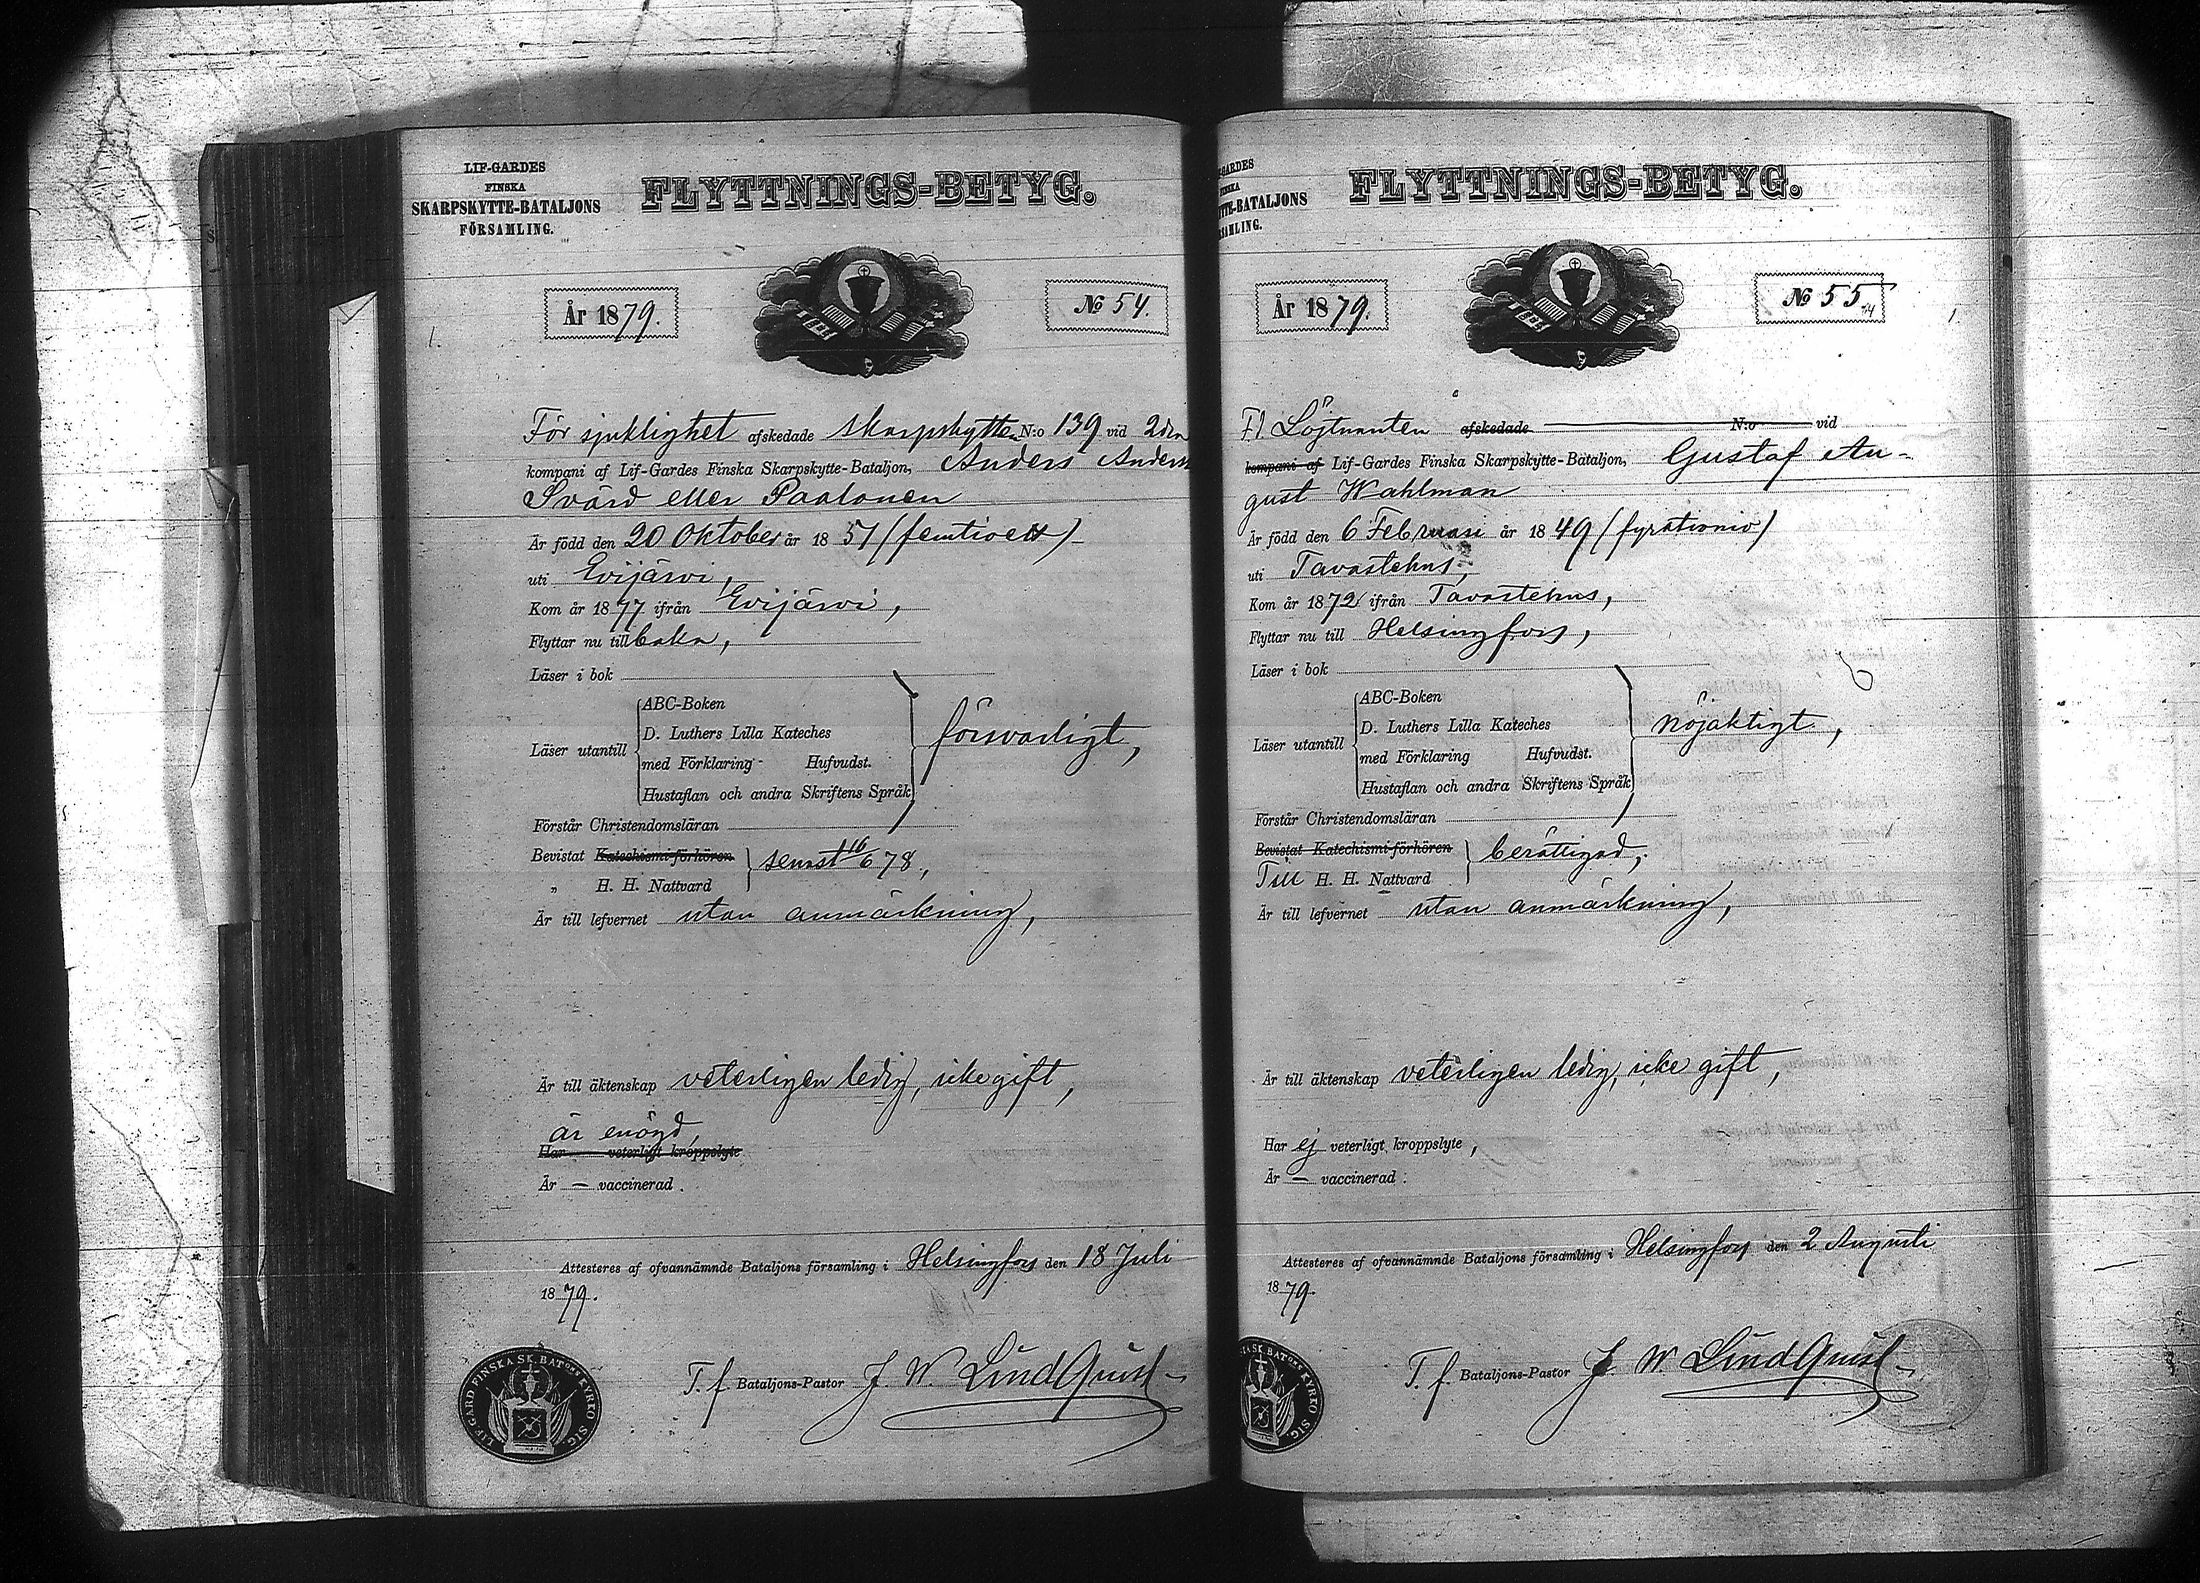 LIF-GARDES
FINSKA
SKARPSKYTTE-BATALJONS
FÖRSAMLING.
FLYTTNINGS-BETYG.
År 1879.
№ 54.
1.
För sjuklighet afskedade skarpskytten N:o 139 vid 2dra
kompani af Lif-Gardes Finska Skarpskytte-Bataljon, Anders Anders
Svärd eller Paalonen
Är född den 20 Oktober år 1851 (femtioett)
uti Evijärvi,
Kom år 1877 ifrån Evijärvi,
Flyttar nu tillbaka,
Läser i bok
ABC-Boken
D. Luthers Lilla Kateches
Läser utantill
med Förklaring Hufvudst.
Hustaflan och andra Skriftens Språk
försvarligt,
Förstår Christendomsläran
Bevistat Katechismi-förhören
senast 16/6 78,
„ H. H. Nattvard
Är till lefvernet utan anmärkning,
Är till äktenskap veterligen ledig, icke gift,
är enögd,
Har — veterligt kroppslyte
Är — vaccinerad.
Attesteres af ofvannämnde Bataljons församling i Helsingfors den 18 Juli
1879.
T. f. Bataljons-Pastor J. W. Lindquist
LIF-GARD FINSKA SK. BATONS KYRKO SIG.
GARDES
TTE-BATALJONS
FLYTTNINGS-BETYG.
År 1879.
№ 55
1.
Fl Löjtnanten afskedade N:o vid
kompani af Lif-Gardes Finska Skarpskytte-Bataljon, Gustaf Au-
gust Wahlman
Är född den 6 Februari år 1849 (fyrationio)
uti Tavastehus,
Kom år 1872 ifrån Tavastehus,
Flyttar nu till Helsingfors,
Läser i bok
ABC-Boken
D. Luthers Lilla Kateches
Läser utantill
med Förklaring Hufvudst.
Hustaflan och andra Skriftens Språk
nöjaktigt,
Förstår Christendomsläran
Bevistat Katechismi-förhören
berättigad,
Till H. H. Nattvard
Är till lefvernet utan anmärkning,
Är till äktenskap veterligen ledig, icke gift,
Har ej veterligt kroppslyte,
Är — vaccinerad.
Attesteres af ofvannämnde Bataljons församling i Helsingfors den 2 Augusti
1879.
T. f. Bataljons-Pastor J. W. Lindquist
SK. BATONS KYRKO SIG.